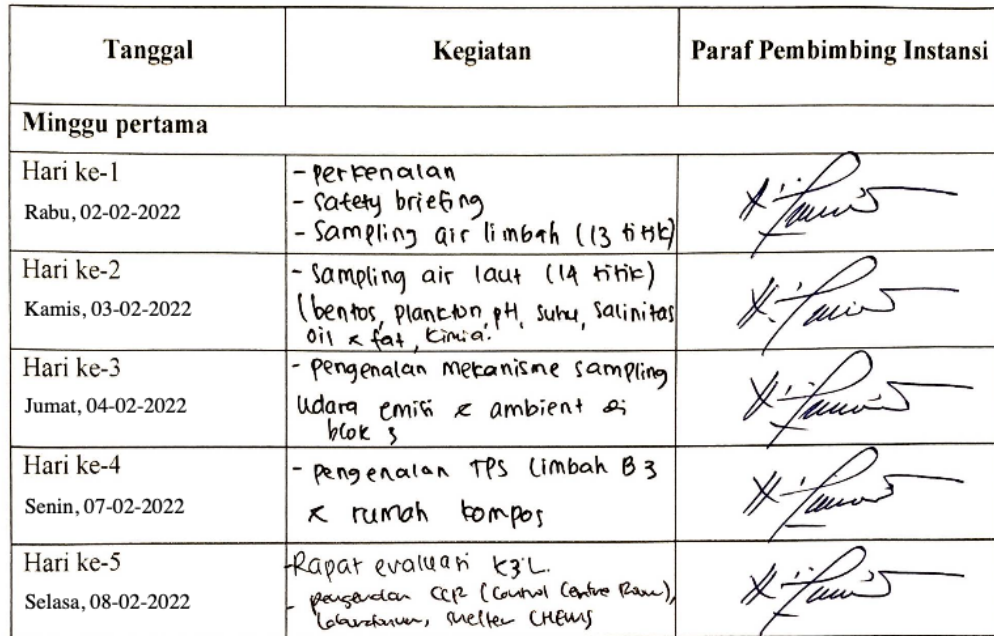 Tanggal
Kegiatan
Paraf Pembimbing Instansi
Minggu pertama
Hari ke-1
Rabu, 02-02-2022
- perkenalan
- Safety briefing
- Sampling air limbah (13 titik)
Hari ke-2
Kamis, 03-02-2022
- Sampling air laut (14 titik)
(bentos, plankton, pH, suhu, salinitas
oil & fat, kimia.
Hari ke-3
Jumat, 04-02-2022
- pengenalan mekanisme sampling
Udara emisi & ambient di
blok 3
Hari ke-4
Senin, 07-02-2022
- pengenalan TPS Limbah B3
& rumah kompos
Hari ke-5
Selasa, 08-02-2022
- Rapat evaluasi K3L.
- pengenalan CCR (Control Centre Room),
Laboratorium, CHEMS